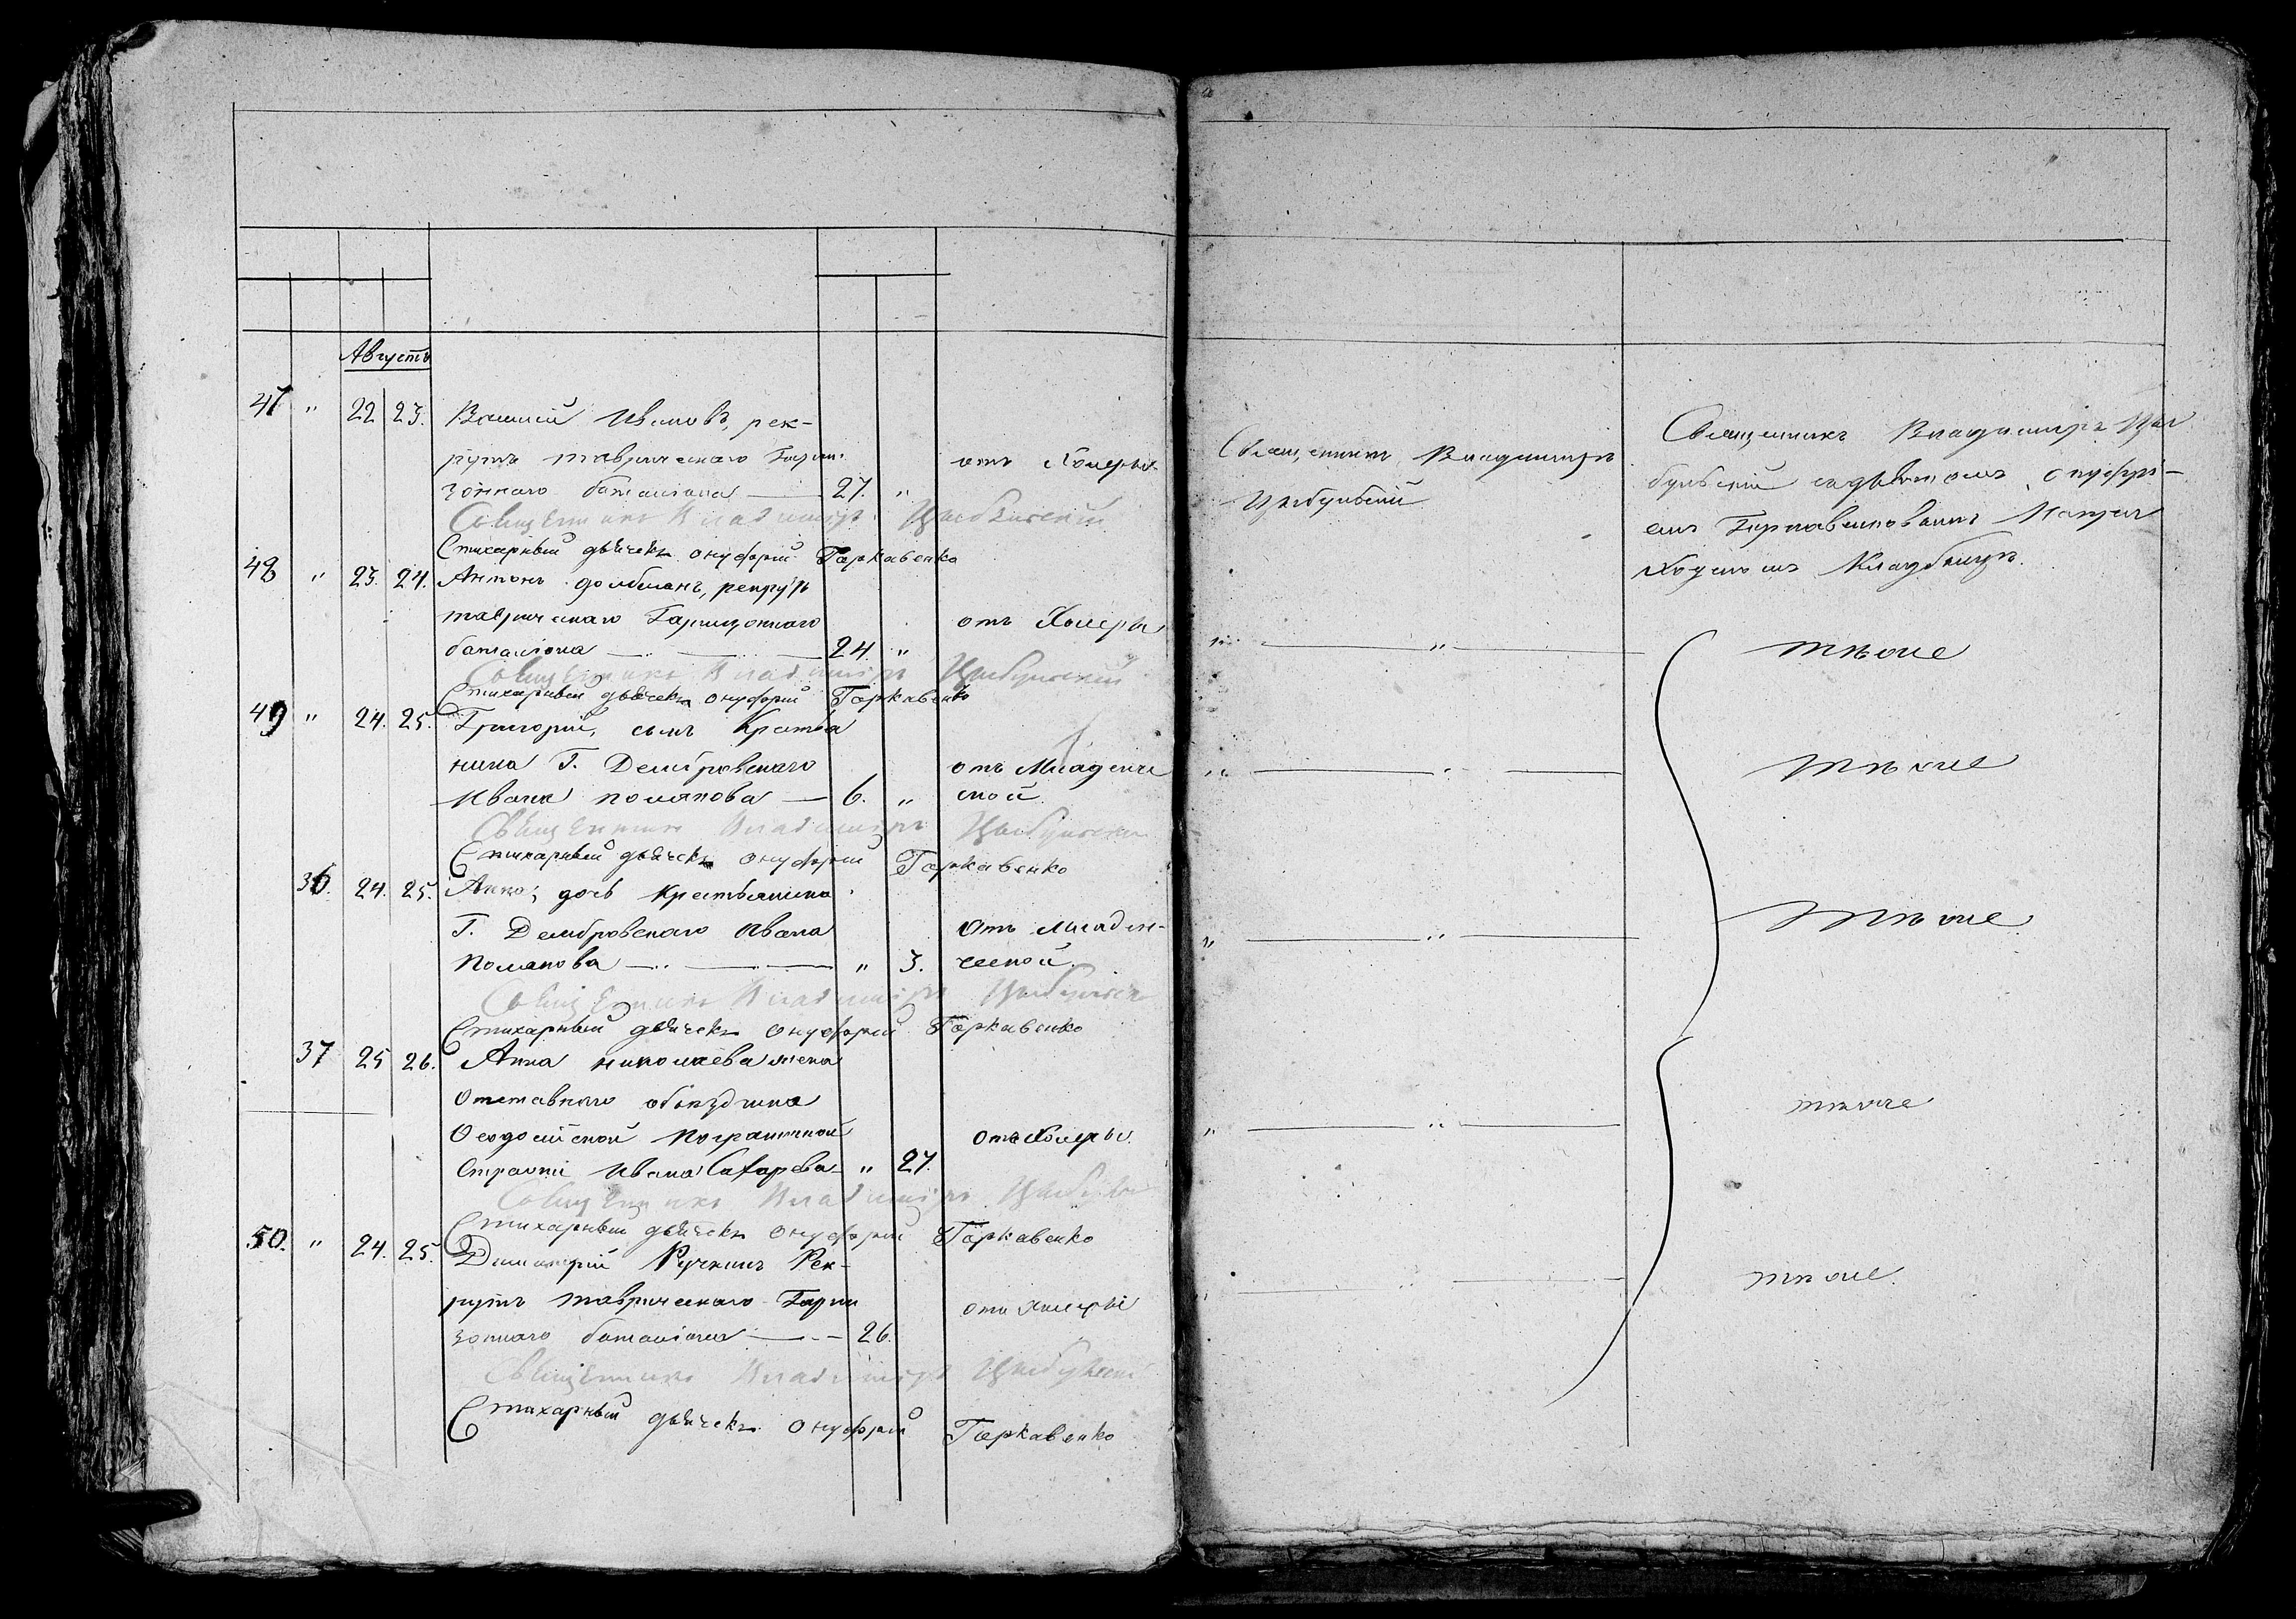 Августъ
47 " 22 23. Василий Ивановъ, рек-
рутъ таврическаго Гарни-
зоннаго баталіона — 27. " отъ Холеры
Священникъ Владимиръ Цыбульский
Стихарный дьячекъ Онуфрий Гаркавенко
48 " 23. 24. Антонъ рекрутъ
таврическаго Гарнизоннаго отъ Холеры
баталіона — 24. "
Священникъ Владимиръ Цыбульский
Стихарный дьячекъ Онуфрий Гаркавенко
49 " 24. 25. Григорий, сынъ Крестья
нина Г. Ивана — 6. " отъ Младенче
ской.
Священникъ Владимиръ Цыбульский
Стихарный дьячекъ Онуфрий Гаркавенко
36. 24. 25. Анна, дочь Крестьянина
Г. Ивана отъ младен-
— " 3. ческой.
Священникъ Владимиръ Цыбульский
Стихарный дьячекъ Онуфрий Гаркавенко
37 25 26. Анна николаева жена
Отставного объездчика
Ѳеодосийской пограничной отъ Холеры.
Стражи Ивана Сахарова — " 27.
Священникъ Владимиръ
Стихарный дьячекъ Онуфрий Гаркавенко
50. " 24. 25. Димитрий Ручкинъ Рек-
рутъ таврическаго Гарни отъ Холеры
зоннаго баталіона — 26.
Священникъ Владимиръ Цыбульский
Стихарный дьячекъ Онуфрий Гаркавенко
Священникъ Владимиръ
Цыбульский
Священникъ Владимиръ Цы
бульский съ дьячкомъ Онуфрі-
емъ Гаркавенковымъ На
Кладбищѣ.
" — " — тѣ же
" — " — тѣ же
" — " — тѣ же
" — " — тѣ же
" — тѣ же.